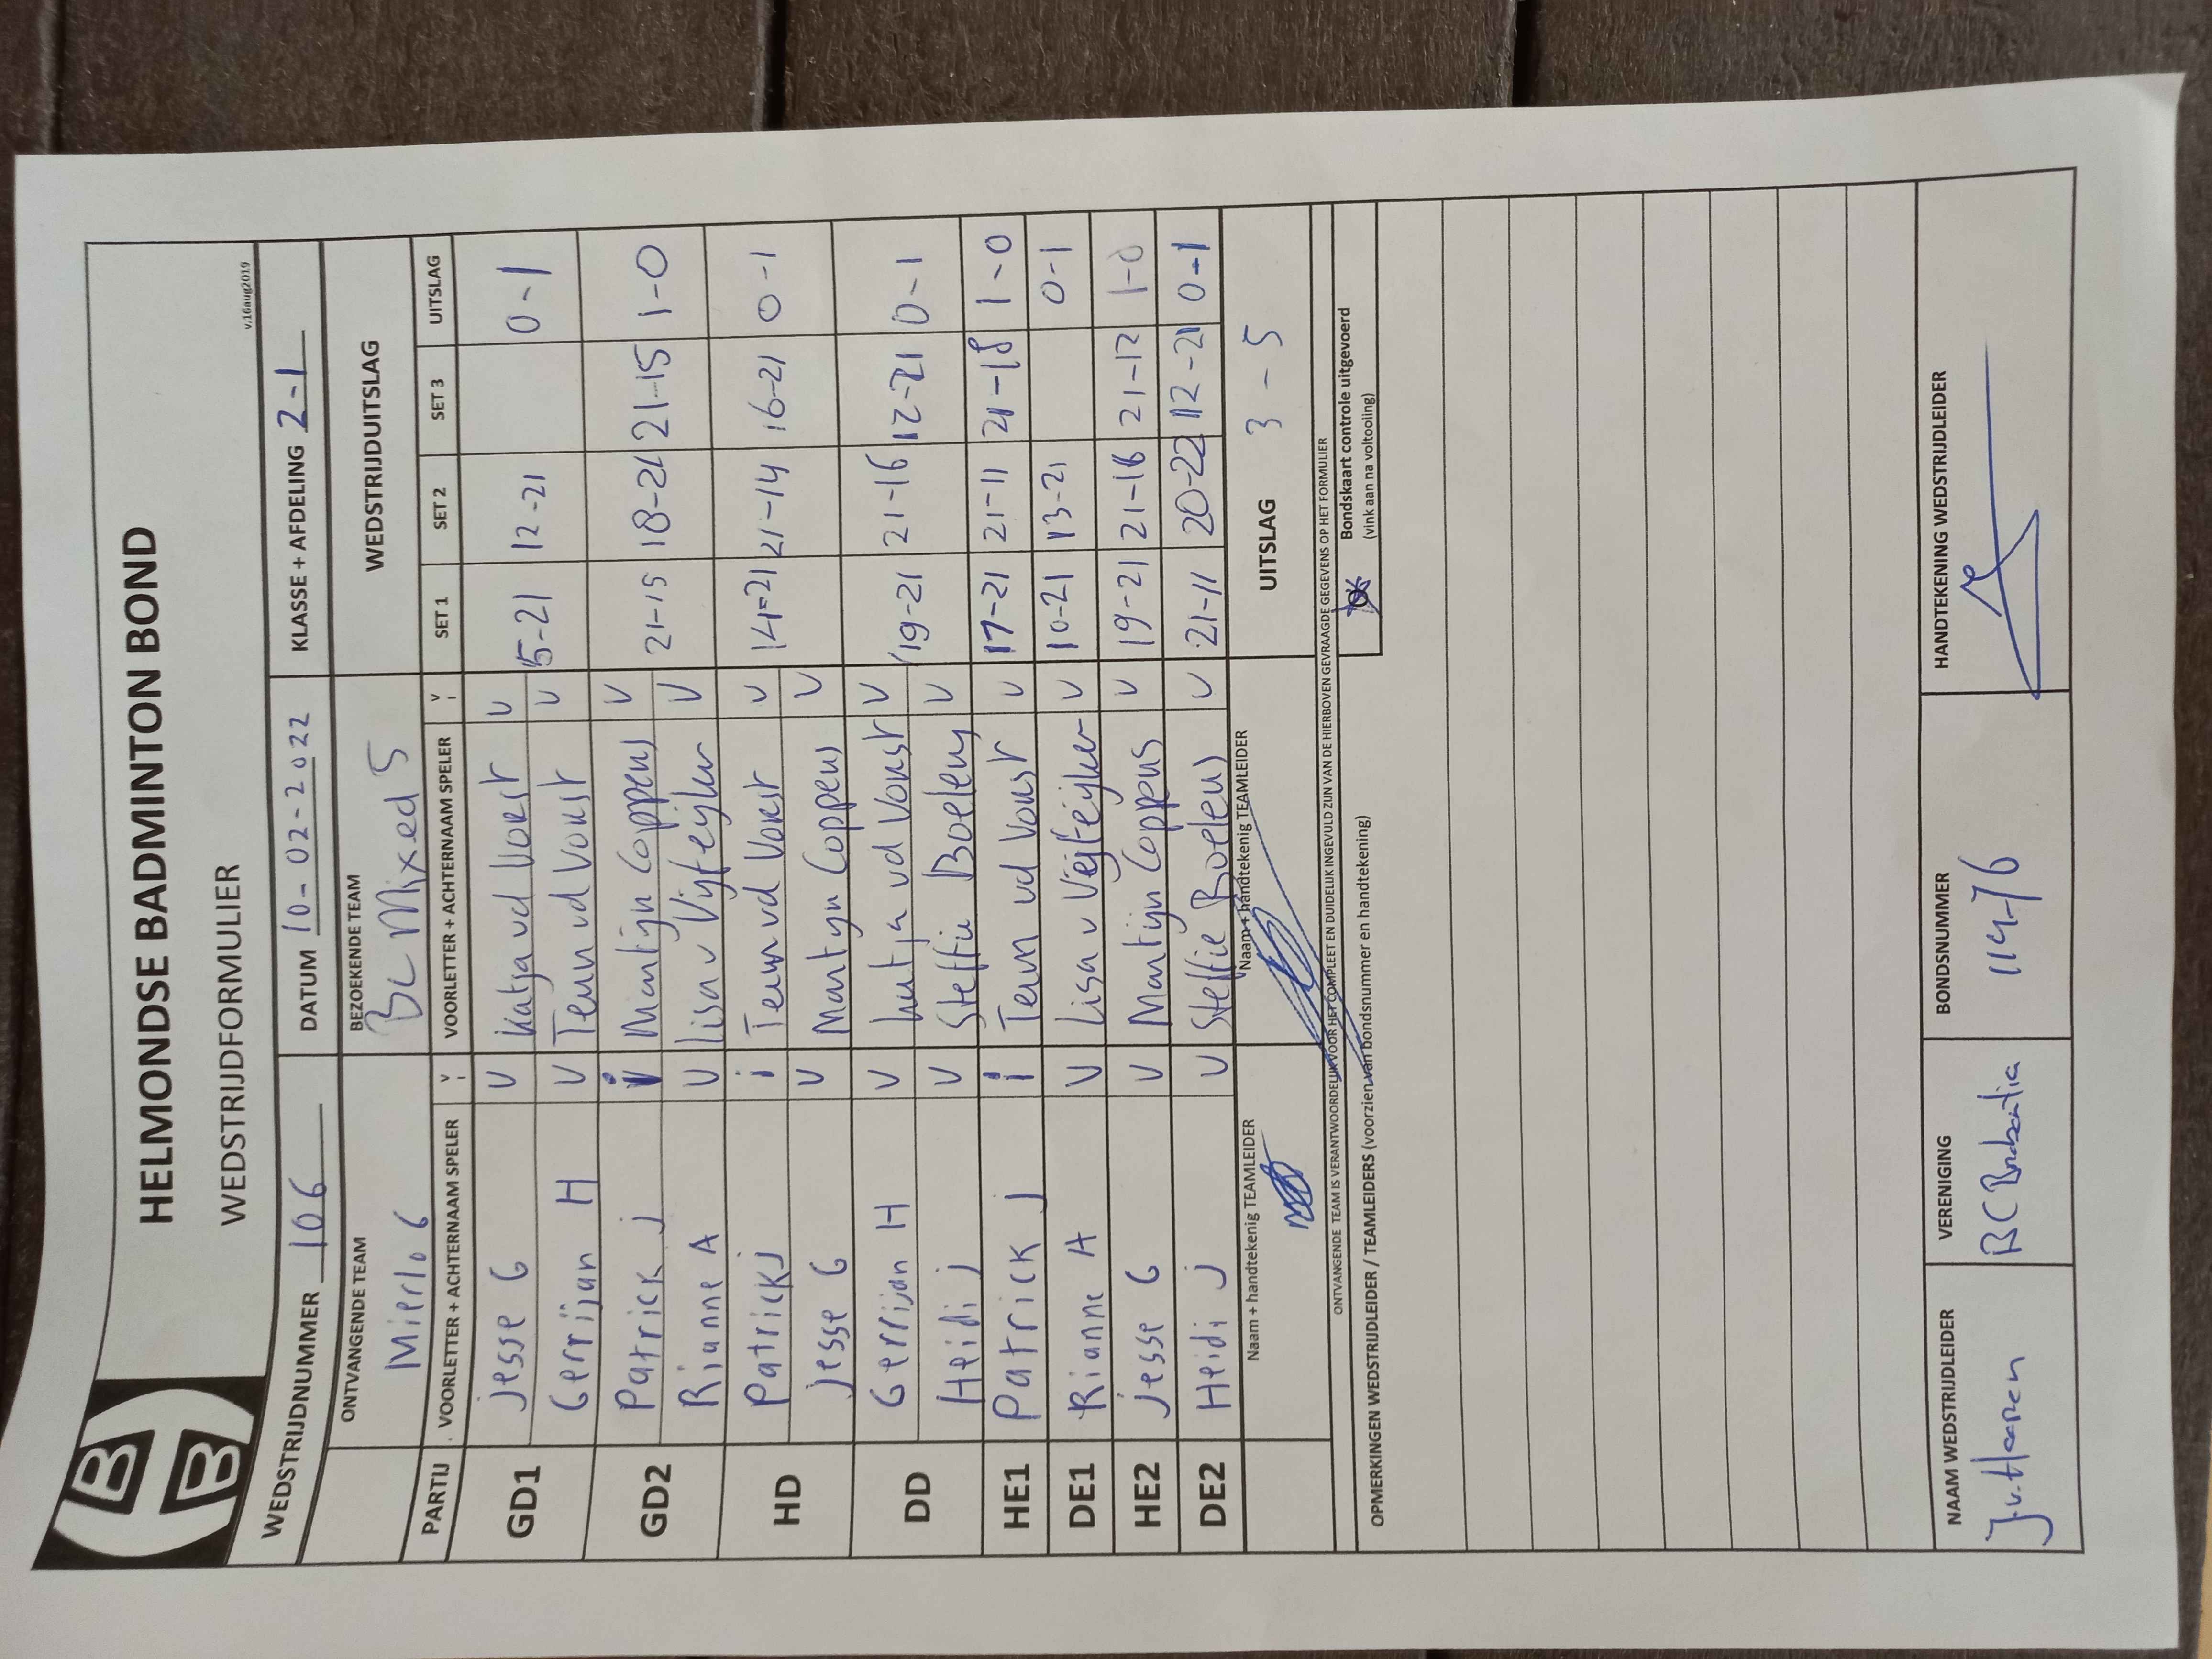 HELMONDSE BADMINTON BOND
WEDSTRIJDFORMULIER
v.16aug2019
WEDSTRIJDNUMMER 106 DATUM 10-02-2022 KLASSE + AFDELING 2-1
ONTVANGENDE TEAM BEZOEKENDE TEAM WEDSTRIJDUITSLAG
Mierlo 6 BC Mixed 5
PARTIJ VOORLETTER + ACHTERNAAM SPELER V VOORLETTER + ACHTERNAAM SPELER V SET 1 SET 2 SET 3 UITSLAG
GD1 Jesse G V Katja vd Vorst V 15-21 12-21 0-1
Gerrijan H V Teun vd Vorst V
GD2 Patrick J V Martijn Coppens V 21-15 18-21 21-15 1-0
Rianne A V Lisa v Vijfeijken V
HD Patrick J i Teun vd Vorst V 14-21 21-14 16-21 0-1
Jesse G V Martijn Coppens V
DD Gerrijan H V Katja vd Vorst V 19-21 21-16 12-21 0-1
Heidi J V Steffie Boelens V
HE1 Patrick J i Teun vd Vorst V 17-21 21-11 21-18 1-0
DE1 Rianne A V Lisa v Vijfeijken V 10-21 13-21 0-1
HE2 Jesse G V Martijn Coppens V 19-21 21-16 21-12 1-0
DE2 Heidi J V Steffie Boelens V 21-11 20-22 12-21 0-1
Naam + handtekenig TEAMLEIDER Naam + handtekenig TEAMLEIDER UITSLAG 3-5
ONTVANGENDE TEAM IS VERANTWOORDELIJK VOOR HET COMPLEET EN DUIDELIJK INGEVULD ZIJN VAN DE HIERBOVEN GEVRAAGDE GEGEVENS OP HET FORMULIER
Bondskaart controle uitgevoerd
(vink aan na voltooiing)
OPMERKINGEN WEDSTRIJDLEIDER / TEAMLEIDERS (voorzien van bondsnummer en handtekening)
NAAM WEDSTRIJDLEIDER VERENIGING BONDSNUMMER HANDTEKENING WEDSTRIJDLEIDER
J.v.Haaren BC Brabantia 11476